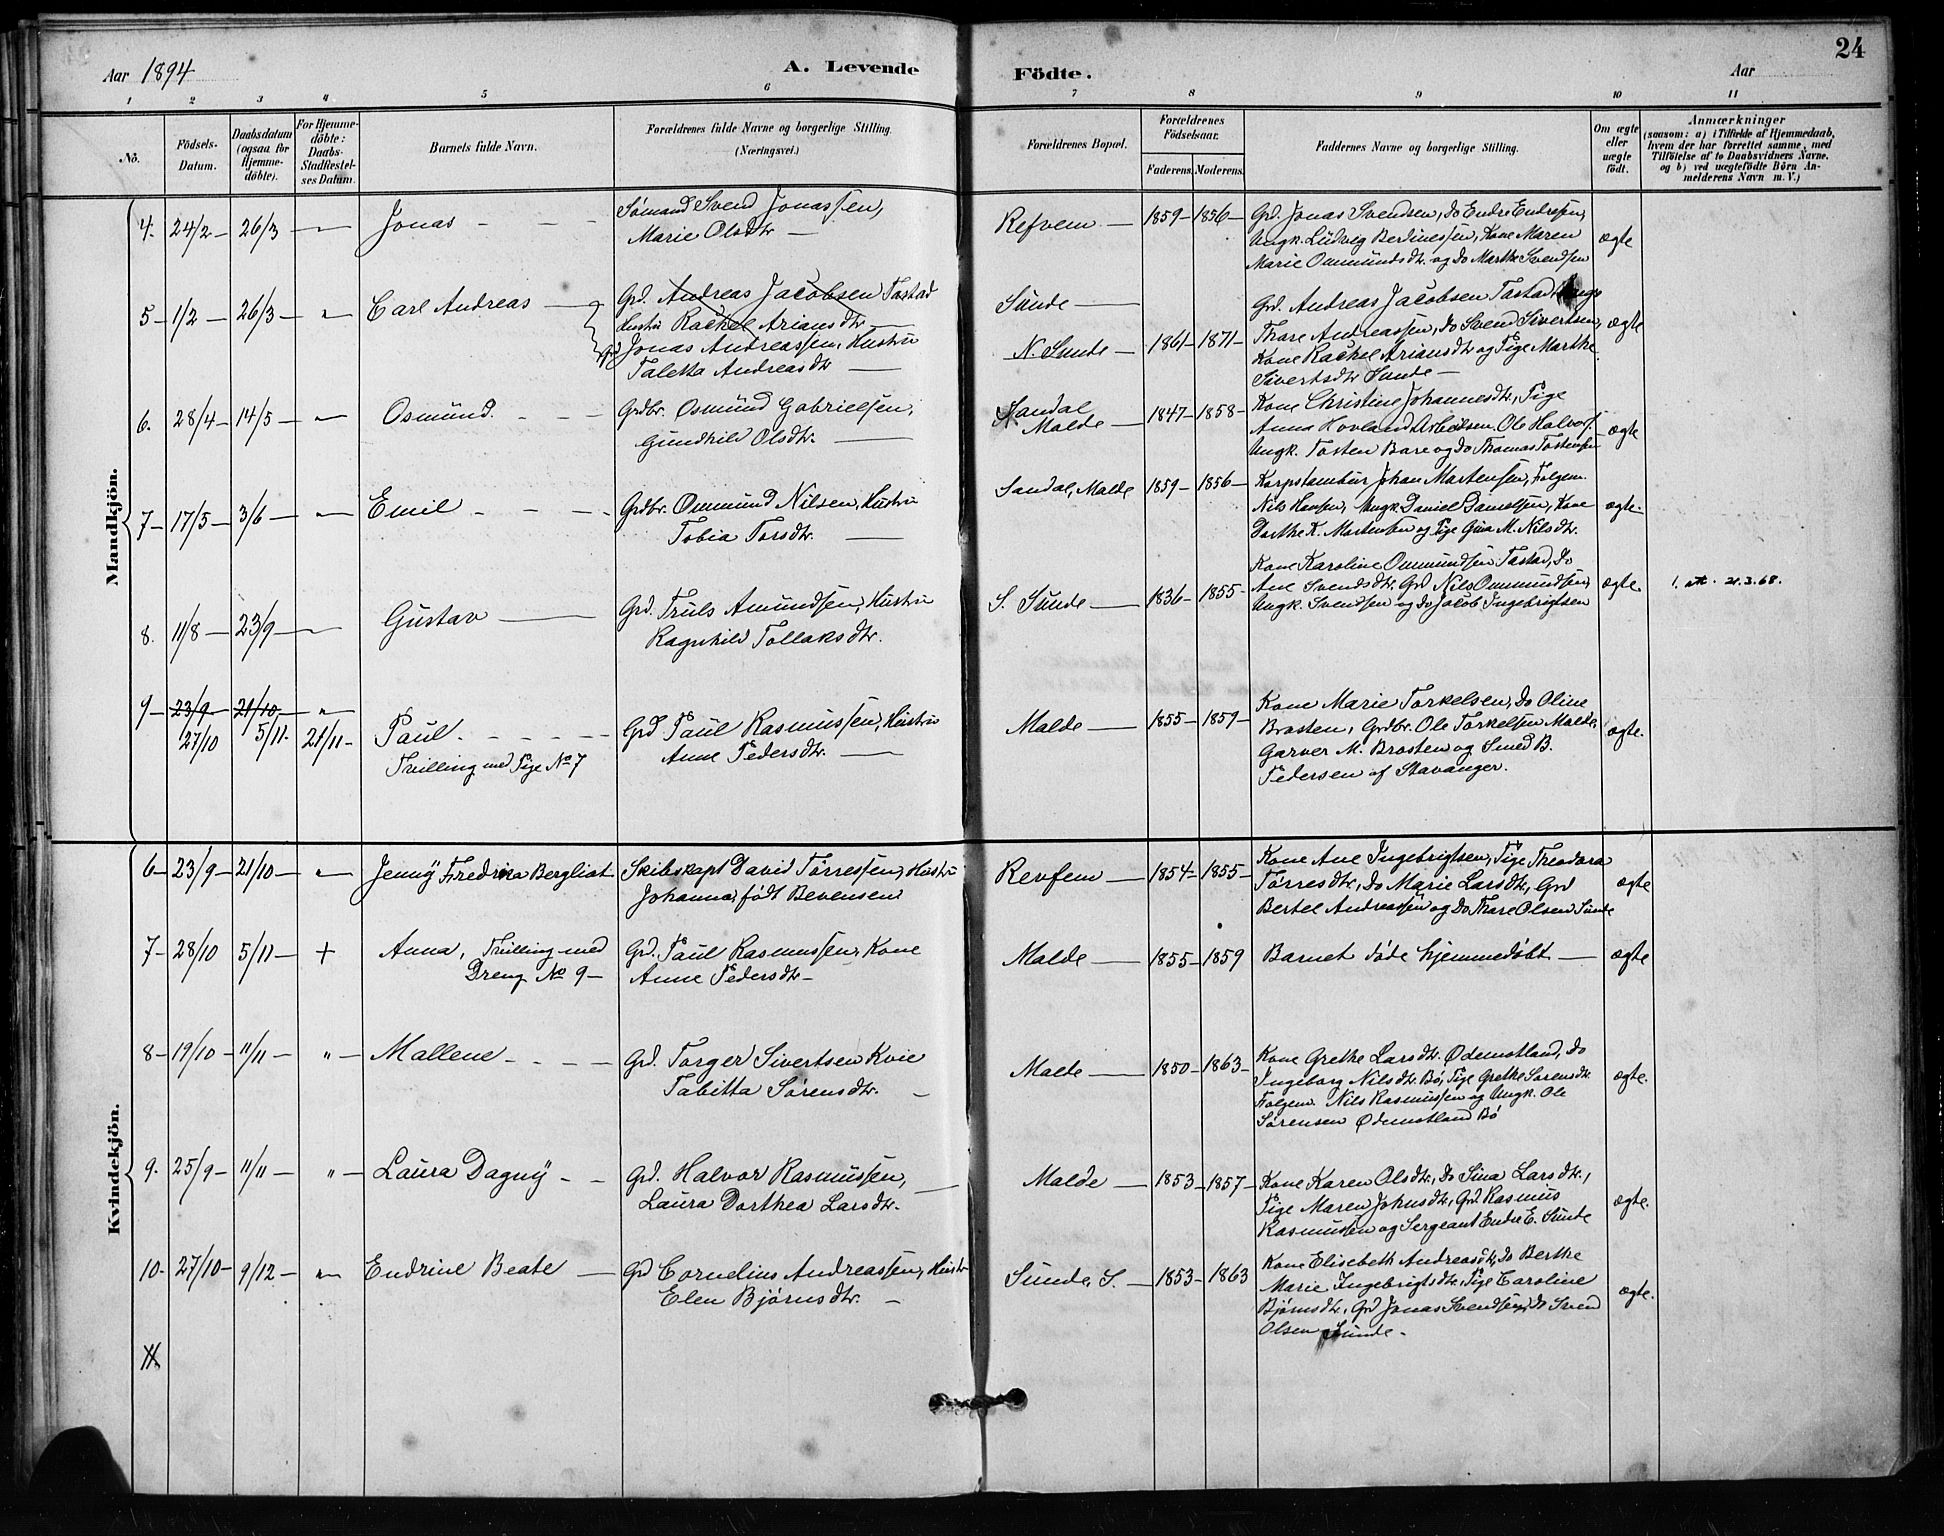 24
Aar 1894
A. Levende Födte.
Aar
1 2 3 4 5 6 7 8 9 10 11
No.
Födsels-Datum.
Daabsdatum (ogsaa for Hjemme-döbte).
For Hjemme-döbte: Daabs-Stadfæstel-ses Datum.
Barnets fulde Navn.
Forældrenes fulde Navne og borgerlige Stilling.
(Næringsvei.)
Forældrenes Bopæl.
Forældrenes Fødselsaar.
Faderens. Moderens.
Faddernes Navne og borgerlige Stilling.
Om ægte eller uægte født.
Anmærkninger
(saasom: a) i Tilfælde af Hjemmedaab,
hvem der har forrettet samme, med
Tilföielse af to Daabsvidners Navne,
og b) ved uægtefödte Börn An-
melderens Navn m. V.)
Mandkjön.
4. 24/2 – 26/3 — Jonas - - -
Sømand Svend Jonassen,
Marie Olsdtr —
Refvem — 1859 – 1856 –
Grd. Jonas Svendsen, do Endre Endresen,
Ungk. Ludvig Berdinessen, Kone Maren
Marie Ommundsdtr. og do Marthe Svendsen
ægte
5 – 1/2 – 26/3 – " Carl Andreas —
Grd. Andreas Jacobsen Tastad
Hustru Rachel Ariansdtr —
Grd Jonas Andreassen, Hustru
Taletta Andreasdtr —
Sunde —
N. Sunde – 1861 – 1871 –
Grd. Andreas Jacobsen Tastad, Ungk
Thare Andreassen, do Svend Sivertsen,
Kone Rachel Ariansdtr og Pige Marthe
Sivertsdtr Sunde —
ægte
6. 28/4 – 14/5 – — Osmund. - - -
Grdbr. Osmund Gabrielsen,
Gundhild Olsdtr. —
Sandal
Malde – 1847 – 1858 –
Kone Christine Johannesdtr, Pige
Anna Hovland, Arbeidsm. Ole Halvors.
Ungk. Tosten Bare og do Thomas Tostensen
ægte
7 – 17/5 – 3/6 – — Emil - - -
Grdbr. Ommund Nilsen, Hustru
Tobia Torsdtr. —
Sandal, Malde 1859 – 1856 –
Korpstambur Johan Martensen, Folgem.
Nils Hansen, Ungk. Daniel Danielsen, Kone
Dorthe K. Martensen og Pige Gina M. Nilsdtr.
ægte –
8. 11/8 – 23/9 – — Gustav —
Grd. Truls Amundsen, Hustru
Ragnhild Tollaksdtr.
S. Sunde — 1836 – 1855 –
Kone Karoline Ommundsen Tastad, do
Ane Svendsdtr. Grd Nils Ommundsen,
Ungk. Svendsen og do Jacob Ingebrigtsen
ægte.
1. att. 21.3.68.
9 – 23/9 – 21/10 – "
27/10 5/11. 21/11 –
Paul. - - - - -
Tvilling med Pige No 7
Grd Paul Rasmussen, Hustru
Anne Pedersdtr. —
Malde — 1855 – 1859 –
Kone Marie Torkelsen, do Oline
Brosten, Grdbr. Ole Torkelsen Malde,
Garver M. Brosten og Smed B.
Pedersen af Stavanger.
ægte.
Kvindekjön.
6 – 23/9 – 21/10 – " Jenny Fredrica Bergliot
Skibskapt David Tørressen, Hustru
Johanna, født Bevensen
Revfem — 1854 – 1855 –
Kone Ane Ingebrigtsen, Pige Theodora
Tørresdtr, do Marie Larsdtr, Grd
Bertel Andreassen og do Thare Olsen Sunde
ægte
7 – 28/10 5/11 – + Anna, Tvilling med
Dreng No 9 –
Grd. Paul Rasmussen, Kone
Anne Pedersdtr –
Malde — 1855 – 1859
Barnet døde hjemmedøbt —
ægte
8 – 19/10 – 11/11 – " – Mallene - - -
Grd. Torger Sivertsen Kvie
Tabitta Sørensdtr. –
Malde — 1850 – 1863 –
Kone Grethe Larsdtr. Ødemotland, do
Ingeborg Nilsdtr. Bø, Pige Grethe Sørensdtr.
Folgem. Nils Rasmussen og Ungk. Ole
Sørensen Ødemotland Bø
ægte.
9. 25/9 – 11/11 – " – Laura Dagny - -
Grd. Halvor Rasmussen,
Laura Dorthea Larsdtr. —
Malde — 1853 – 1857 –
Kone Karen Olsdtr, do Sina Larsdtr,
Pige Maren Johnsdtr, Grd. Rasmus
Rasmussen og Sergeant Endre E. Sunde
ægte.
10 – 27/10 – 9/12 – " Endrine Beate —
Grd Cornelius Andreassen, Hustr
Elen Bjørnsdtr. –
Sunde, S. – 1853 – 1863
Kone Elisebeth Andreasdtr, do Berthe
Marie Ingebrigtsdtr, Pige Caroline
Bjørnsdtr, Grd Jonas Svendsen, do Svend
Olsen Sunde –
ægte.
11